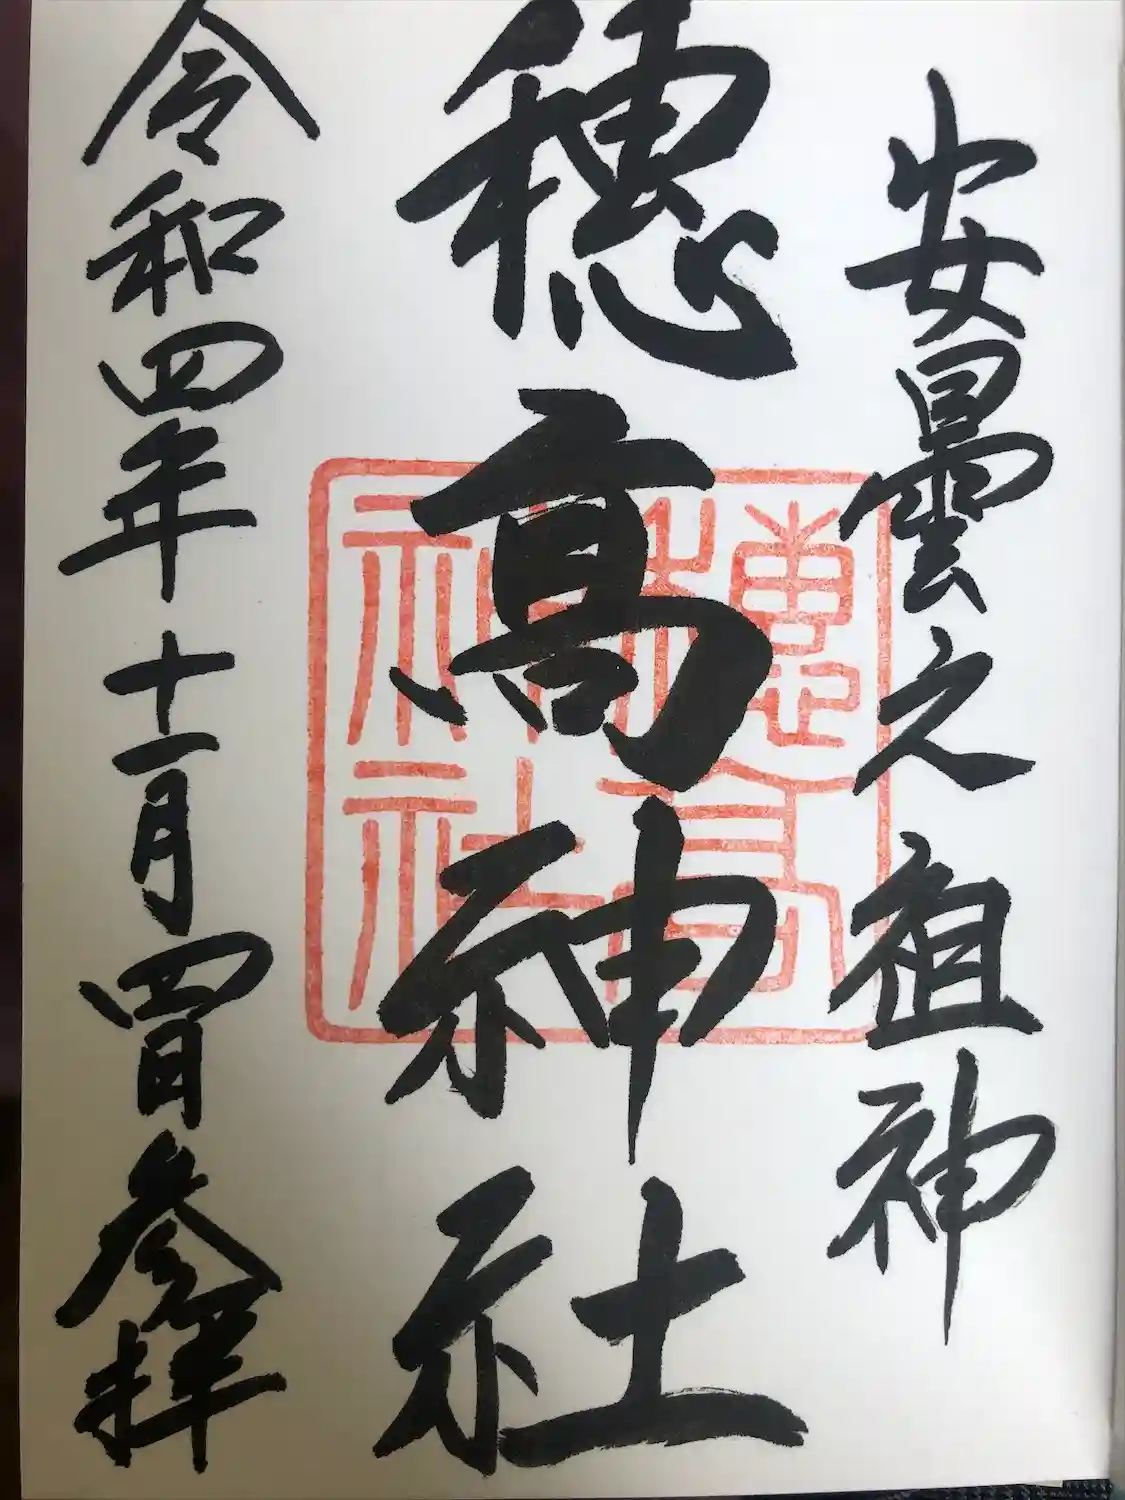 安曇之祖神
穂高神社
令和四年十一月四日参拝
穂高
神社